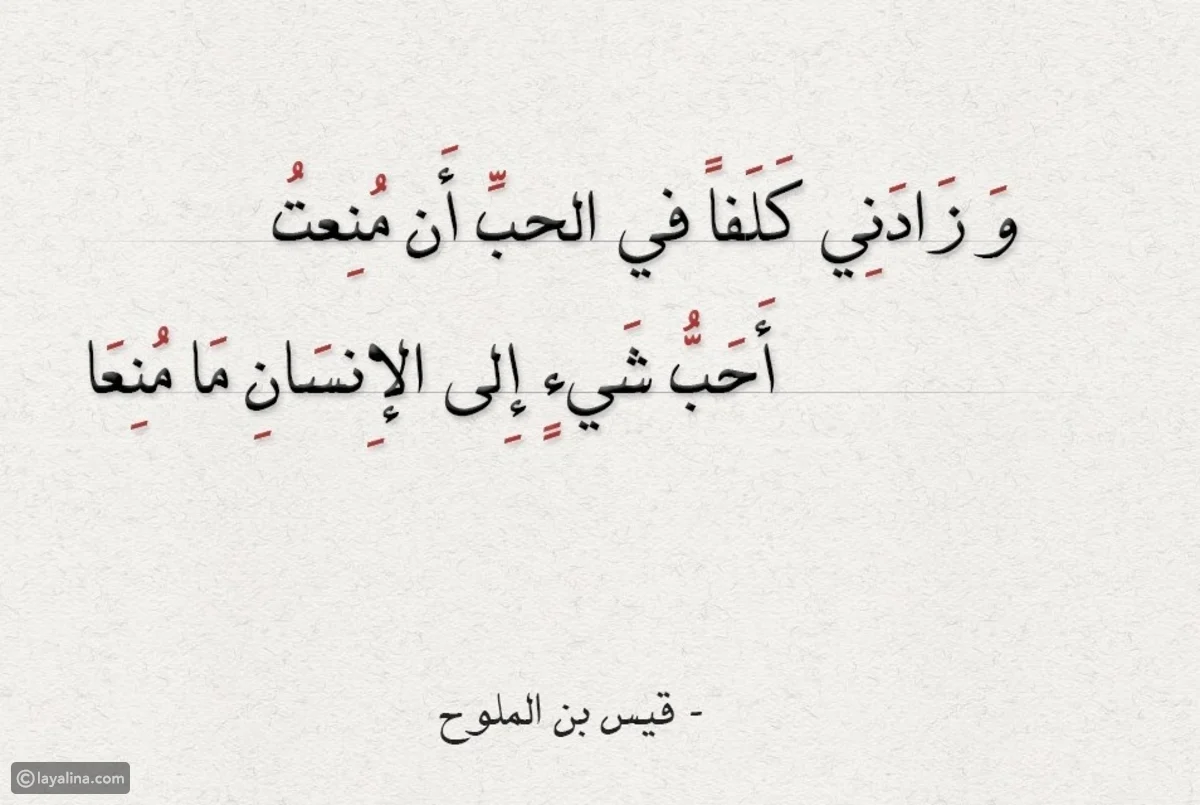 وَ زَادَنِي كَلَفاً في الحبِّ أَن مُنِعتُ
أَحَبُّ شَيءٍ إِلى الإِنسَانِ مَا مُنِعَا
- قيس بن الملوح
©layalina.com